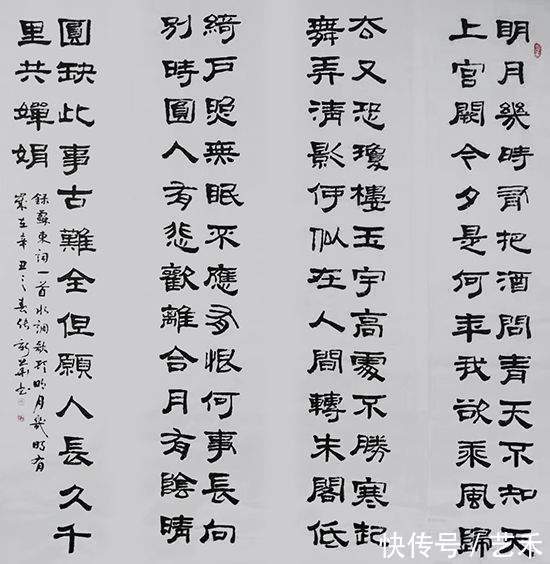 明月幾時有把酒問青天不知天
上宮闕今夕是何年我欲乘風歸
去又恐瓊樓玉宇高處不勝寒起
舞弄清影何似在人間轉朱閣低
綺戶照無眠不應有恨何事長向
別時圓人有悲歡離合月有陰晴
圓缺此事古難全但願人長久千
里共嬋娟
錄蘇東詞一首水調歌頭明月幾時有
歲在辛丑之春
快传号 / 艺禾